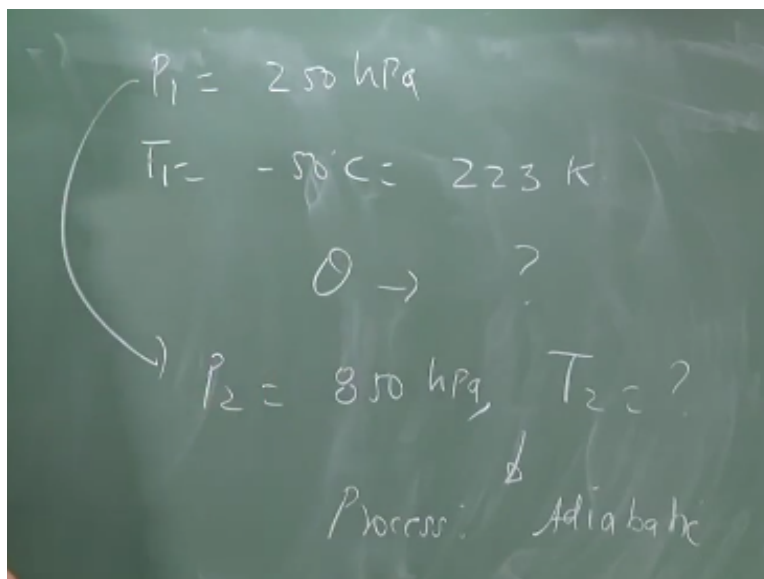 P₁ = 250 hPa
T₁ = -50°C = 223 K
θ → ?
P₂ = 850 hPa, T₂ = ?
Process: Adiabatic